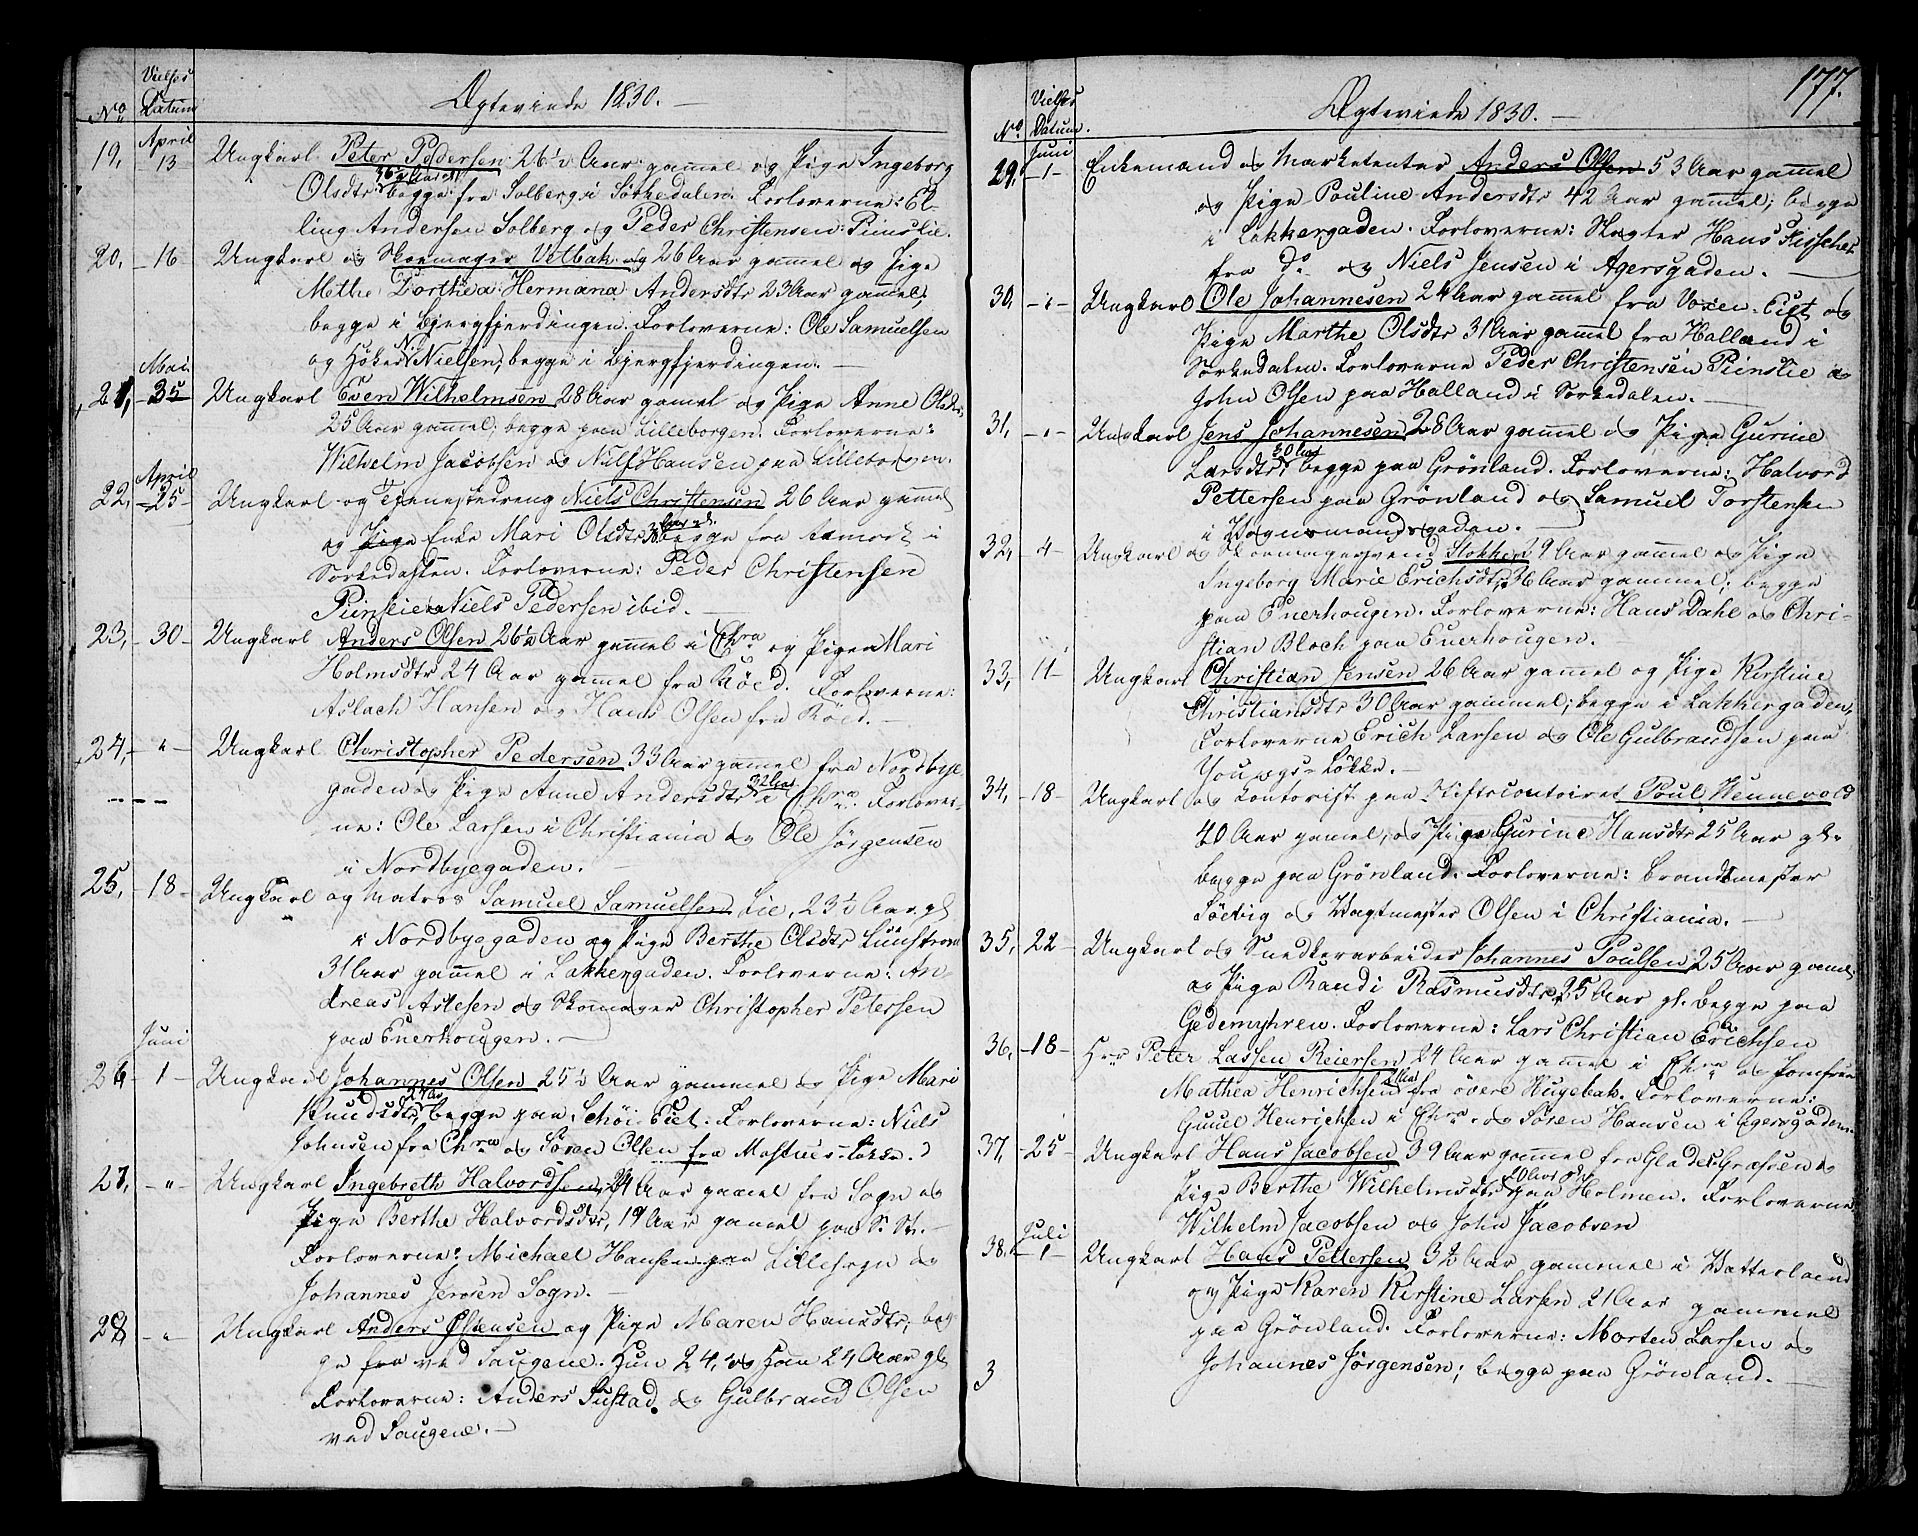 Vielses
No. Datum
Ægteviede 1830.
April
19, 13 Ungkarl Peter Pedersen 26½ Aar gammel og Pige Ingeborg
Olsdtr begge fra Solberg i Sørkedalen. Forloverne: El-
ling Andersen Solberg og Peder Christensen Pinslie.
20, - 16 Ungkarl og Skoemager Vetbak 26 Aar gamel og Pige
Methe Dorthea Hermana Andersdtr 23 Aar gamel,
begge i Bjergfjerdingen. Forloverne: Ole Samuelsen
og Høker N Nielsen, begge i Bjergfjerdingen. -
Mai
21, - Ungkarl Even Wilhelmsen 28 Aar gamel og Pige Anne Olsdtr
25 Aar gamel, begge paa Lilleborgen. Forloverne:
Wilhelm Jacobsen og Hansen paa Lilleborgen.
April
22, - 25 - Ungkarl og Tienestedreng Niels Christensen 26 Aar gamel
og Pige Enke Mari Olsdtr begge fra Aamodt i
Sørkedalen. Forloverne: Peder Christensen
Pinslie og Niels Pedersen ibid. -
23, - 30 - Ungkarl Anders Olsen 26½ Aar gamel i Chra og Pigen Mari
Holmsdtr 24 Aar gamel fra Röed. Forloverne:
Aslach Hansen og Hans Olsen fra Röed. -
24, - " - Ungkarl Christopher Pedersen 33 Aar gamel fra Nordbye
gaden og Pige Anne Andersdtr 32 Aar i Chra. Forlover-
ne: Ole Larsen i Christiania og Ole Jörgensen
i Nordbyegaden. -
25, - 18 - Ungkarl og Matros Samuel Samuelsen Lie, 23½ Aar gl
i Nordbyegaden og Pige Berthe Olsdtr Lünstrom
31 Aar gamel i Lakkergaden. Forloverne: An-
dreas Aslesen og Skomager Christopher Petersen
paa Enerhougen. -
Juni
26, - 1 - Ungkarl Johannes Olsen 25½ Aar gamel og Pige Mari
Knudsdtr begge paa Schöi-Eiet. Forloverne: Niels
Johnsen fra Chra og Sören Olsen fra
27, - " - Ungkarl Ingebreth Halvordsen 24 Aar gamel fra Sogn og
Pige Berthe Halvordsdtr, 19 Aar gamel paa
Forloverne: Michael Hansen paa Lillesogn og
Johannes Jensen Sogn. -
28 - " - Ungkarl Anders og Pige Maren Hansdtr, beg-
ge fra ved Saugene. Hun 24, og Han 24 Aar gl
Forloverne: Anders Sustad og Gulbrand Olsen
ved Saugene. -
177.
Vielses
No. Datum.
Ægteviede 1830. -
Juni
29, - 1 - Enkemand og Marketenter Anders Olsen 53 Aar gamel
og Pige Pouline Andersdtr 42 Aar gamel; begge
i Lakkergaden. Forloverne: Slagter Hans Fisscher
fra do og Niels Jensen i Agersgaden. -
30, - 1 - Ungkarl Ole Johannesen 24 Aar gamel fra Vøien-Eiet og
Pige Marthe Olsdtr 31 Aar gamel fra Halland i
Sørkedalen. Forloverne Peder Christensen Pinslie og
John Olsen paa Halland i Sørkedalen. -
31, - " - Ungkarl Jens Johannesen 28 Aar gamel og Pige Gurine
Larsdtr 30 Aar begge paa Grönland. Forloverne: Halvord
Pettersen paa Grönland og Samuel Torstensen
i Vognmandsgaden. -
32, - 4 - Ungkarl og Skoemagersvend Stokken 29 Aar gammel og Pige
Ingeborg Marie Erichsdtr 36 Aar gammel; begge
paa Enerhougen. Forloverne: Hans Dahl og Chri-
stian Bloch paa Enerhougen.
33, 11 - Ungkarl Christian Jensen 26 Aar gamel og Pige Kirstine
Christiansdtr 30 Aar gammel; begge i Lakkergaden,
Forloverne Erich Larsen og Ole Gulbrandsen paa
Youngs-Løkke. -
34, - 18 - Ungkarl og Contorist paa Stiftscontoiret Poul Wennevold
40 Aar gamel, og Pige Gurine Hansdtr 25 Aar gl.
begge paa Grönland. Forloverne: Brandmester
Söebig og Vagtmester Olsen i Christiania. -
35, - 22 - Ungkarl og Snedkerarbeider Johannes Poulsen 25 Aar gamel
og Pige Randi Rasmusdtr 25 Aar gl. begge paa
Gedemyhren. Forloverne: Lars Christian Erichsen
36, - 18 - Hrr Peter Lassen Reiersen 24 Aar gammel i Chra og Jomfrue
Mathea Henrichsen fra övere Vugebak. Forloverne:
Henrichsen i Chra og Sören Hansen i Agersgaden.
37, - 25 - Ungkarl Hans Jacobsen 39 Aar gammel fra og
Pige Berthe Wilhelmsdtr 20 Aar gl paa Holmen. Forloverne
Wilhelm Jacobsen og John Jacobsen
Juli
38, - 1 - Ungkarl Hans Pettersen 32 Aar gammel i Vatterland
og Pige Karen Kirstine Larsen 21 Aar gammel
paa Grönland. Forloverne: Morten Larsen og
3 Johannes Jörgensen; begge paa Grönland. -